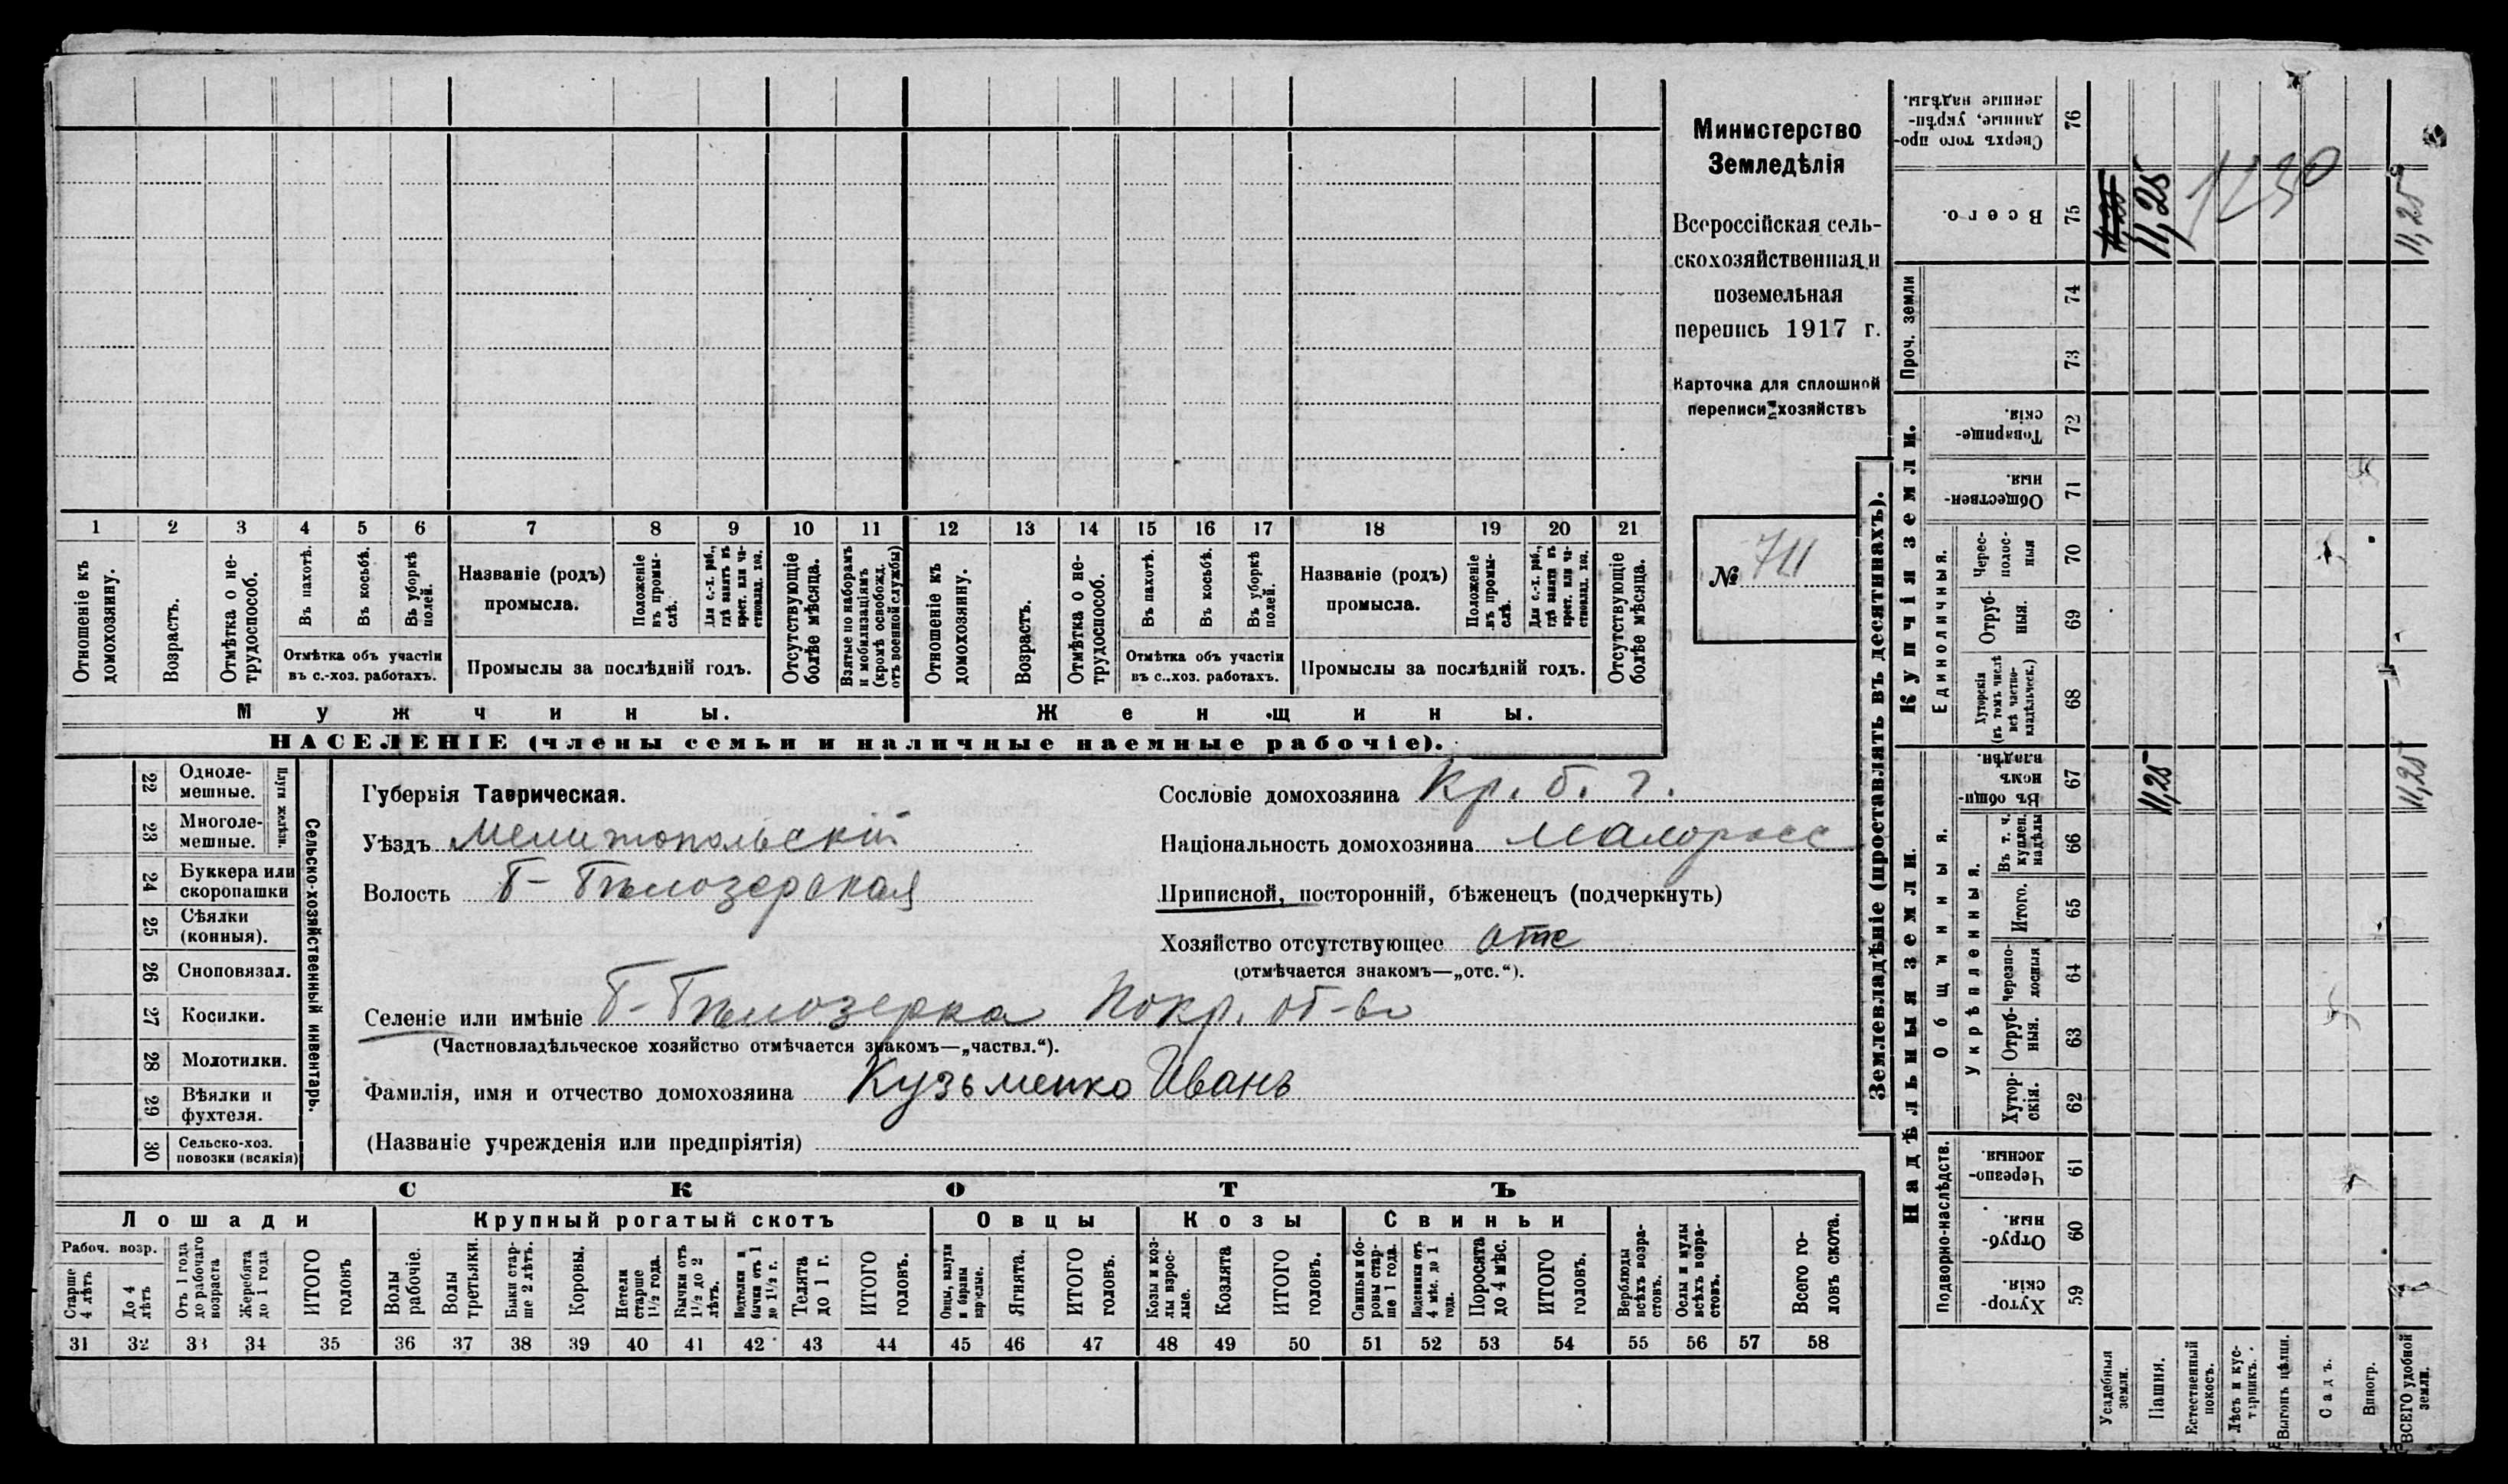 1 2 3 4 5 6 7 8 9 10 11 12 13 14 15 16 17 18 19 20 21
Отношеніе къ домохозяину.
Возрастъ.
Отмѣтка о не-
трудоспособ.
Въ пахотѣ.
Въ косьбѣ.
Въ уборкѣ полей.
Отмѣтка объ участіи
въ с.-хоз. работахъ.
Названіе (родъ)
промысла.
Положеніе въ промы-
слѣ.
Для с.-х. раб.,
гдѣ занятъ въ
крест. или ча-
стновлад. хоз.
Промыслы за послѣдній годъ.
Отсутствующіе
болѣе мѣсяца.
Взятые по наборамъ
и мобилизаціямъ
(кромѣ освобожд.
отъ военной службы)
Отношеніе къ
домохозяину.
Возрастъ.
Отмѣтка о не-
трудоспособ.
Въ пахотѣ.
Въ косьбѣ.
Въ уборкѣ
полей.
Отмѣтка объ участіи
въ с..хоз. работахъ.
Названіе (родъ)
промысла.
Положеніе
въ промы-
слѣ.
Для с.-х. раб.,
гдѣ занята въ
крест. или ча-
стновлад. хоз.
Промыслы за послѣдній годъ.
Отсутствующіе
болѣе мѣсяца.
Мужчины.
Женщины.
НАСЕЛЕНІЕ (члены семьи и наличные наемные рабочіе).
Министерство
Земледѣлія
Всероссійская сель-
скохозяйственная и
поземельная
перепись 1917 г.
Карточка для сплошной
переписи хозяйствъ
№ 711
22 Одноле-
мешные.
23 Многоле-
мешные.
Плуги желѣзн.
24 Буккера или
скоропашки
25 Сѣялки
(конныя).
26 Сноповязал.
27 Косилки.
28 Молотилки.
29 Вѣялки и
фухтеля.
30 Сельско-хоз.
повозки (всякія)
Сельско-хозяйственный инвентарь.
Губернія Таврическая.
Уѣздъ Мелитопольскій
Волость Б-Бѣлозерская
Сословіе домохозяина Кр. б. г.
Національность домохозяина малоросс
Приписной, посторонній, бѣженецъ (подчеркнуть)
Хозяйство отсутствующее отс
(отмѣчается знакомъ—„отс.“).
Селеніе или имѣніе Б-Бѣлозерка Покр. об-во
(Частновладѣльческое хозяйство отмѣчается знакомъ—„частвл.“).
Фамилія, имя и отчество домохозяина Кузьменко Иванъ
(Названіе учрежденія или предпріятія)
СКОТЪ
Лошади
Крупный рогатый скотъ
Овцы
Козы
Свиньи
Рабоч. возр.
Старше
4 лѣтъ
До 4
лѣтъ
Отъ 1 года
до рабочаго
возраста
Жеребята
до 1 года
ИТОГО
головъ
Волы
рабочіе.
Волы
третьяки.
Быки стар-
ше 2 лѣтъ.
Коровы.
Нетели
старше
1½ года.
Бычки отъ
1½ до 2
лѣтъ.
Подтелки и
бычки отъ 1
до 1½ г.
Телята
до 1 г.
ИТОГО
головъ.
Овцы, валухи
и бараны
взрослые.
Ягнята.
ИТОГО
головъ.
Козы и коз-
лы взрос-
лые.
Козлята
ИТОГО
головъ.
Свиньи и бо-
ровы стар-
ше 1 года.
Подсвинки отъ
4 мѣс. до 1
года.
Поросята
до 4 мѣс.
ИТОГО
головъ.
Верблюды
всѣхъ возра-
стовъ.
Ослы и мулы
всѣхъ возра-
стовъ.
Всего го-
ловъ скота.
31 32 33 34 35 36 37 38 39 40 41 42 43 44 45 46 47 48 49 50 51 52 53 54 55 56 57 58
Землевладѣніе (проставлять въ десятинахъ).
Купчія земли.
Надѣльныя земли.
Сверхъ того про-
данные, укрѣп-
ленные надѣлы.
76
Всего.
75
11,25
11,25
1230
11,25
Проч. земли
74
73
Товарище-
скія.
72
Обществен-
ныя.
71
Единоличныя.
Черес-
полос-
ныя
70
Отруб-
ныя.
69
Хуторскія
(въ томъ числѣ
всѣ частно-
владѣльческ.)
68
Общинныя.
Въ общин-
номъ
владѣн.
67
11,25
11,25
Укрѣпленныя.
Въ т. ч.
куплен.
надѣлы
66
Итого.
65
Черезпо-
лосныя
64
Отруб-
ныя.
63
Хутор-
скія.
62
Подворно-наслѣдств.
Черезпо-
лосныя.
61
Отруб-
ныя.
60
Хутор-
скія.
59
Усадебныя
земли.
Пашня.
Естественный
покосъ.
Лѣсъ и кус-
тарникъ.
Выгонъ цѣлин.
Садъ.
Виногр.
ВСЕГО удобной
земли.